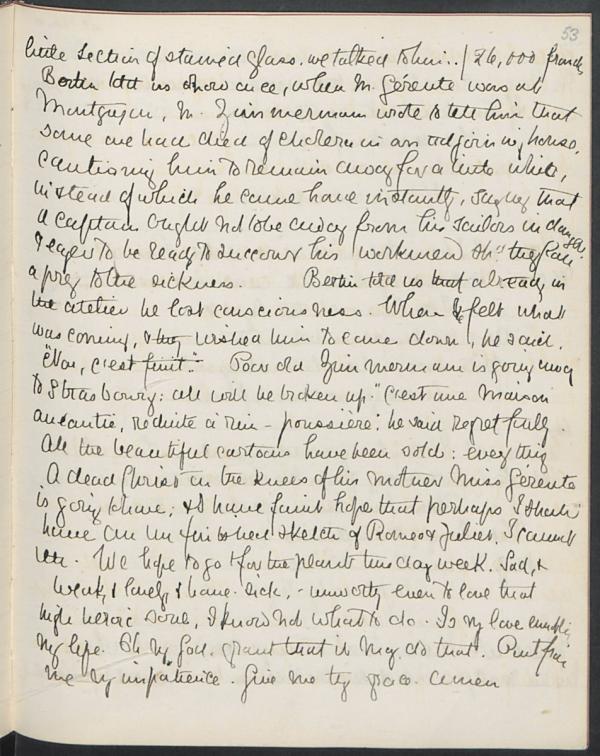 53
little section of stained glass. we talked to him.. | 26,000 francs
Bertin told us how once, when M. Gérente was at
M. Zimmermann wrote to tell him that
some one had died of cholera in an adjoining house,
cautioning him to remain away for a little while,
instead of which he came home instantly, saying that
a captain ought not to be away from his sailors in danger.
& eager to be ready to succour his workmen shd they fall
a prey to the sickness. Bertin told us that already in
the atelier he lost consciousness. When he felt what
was coming, & they wished him to come down, he said.
"Non, c'est fini." Poor old Zimmermann is going away
to Strasbourg: all will be broken up. "C'est une maison
anéantie, réduite à rien - poussière: he said regretfully.
All the beautiful cartoons have been sold: everything
A dead Christ on the knees of his mother Miss Gérente
is going to have; & I have faint hope that perhaps I shall
have an unfinished sketch of Romeo & Juliet. I cannot
We hope to go for the plants this day week. Sad, &
weak, & lonely & home-sick, - unworthy even to love that
high heroic soul, I know not what to do. Is my love ennobling
my life. Oh my God. grant that it may do that.
me my impatience. Give me thy grace. Amen